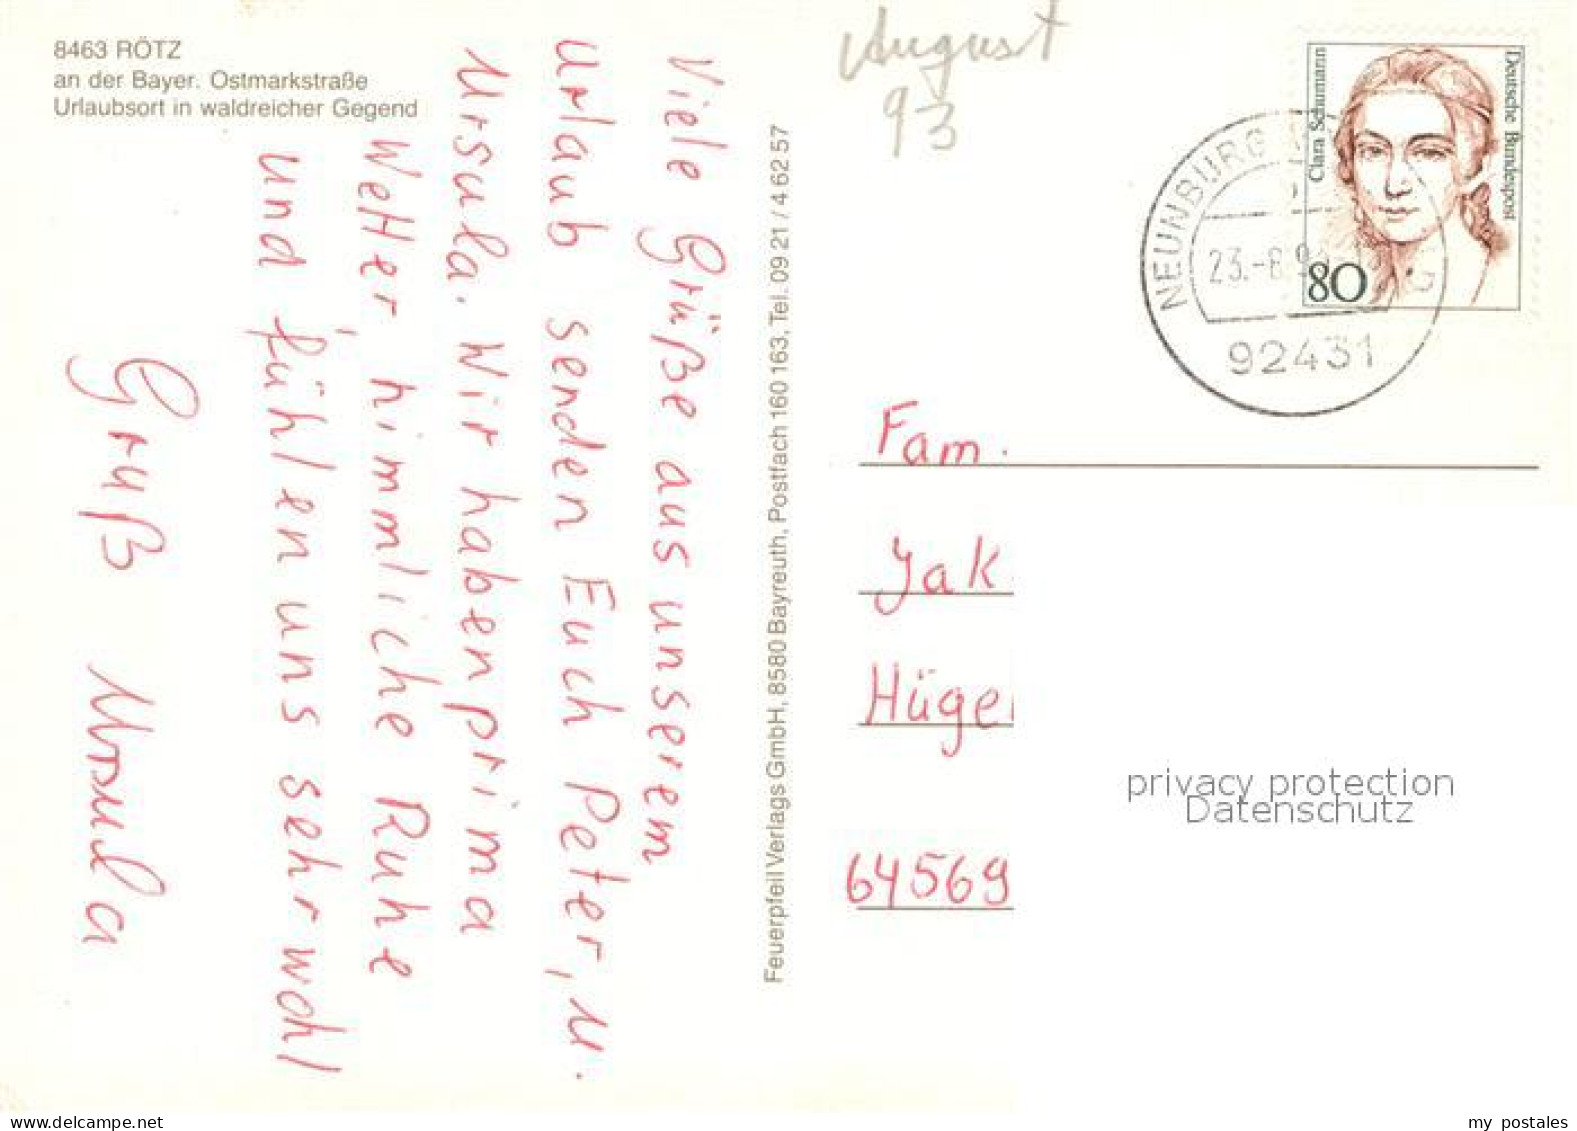 8463 RÖTZ
an der Bayer. Ostmarkstraße
Urlaubsort in waldreicher Gegend
Viele Grüße aus unserem
Urlaub senden Euch Peter, u.
Ursula. Wir haben prima
Wetter, himmliche Ruhe
und fühlen uns sehr wohl
Gruß Ursula
Feuerpfeil Verlags GmbH, 8580 Bayreuth, Postfach 160 163, Tel. 09 21 / 4 62 57
August
93
Clara Schumann
Deutsche Bundespost
80
NEUNBURG
23.-8.9
92431
Fam.
Jak
Hüge
64569
privacy protection
Datenschutz
www.delcampe.net
my_postales